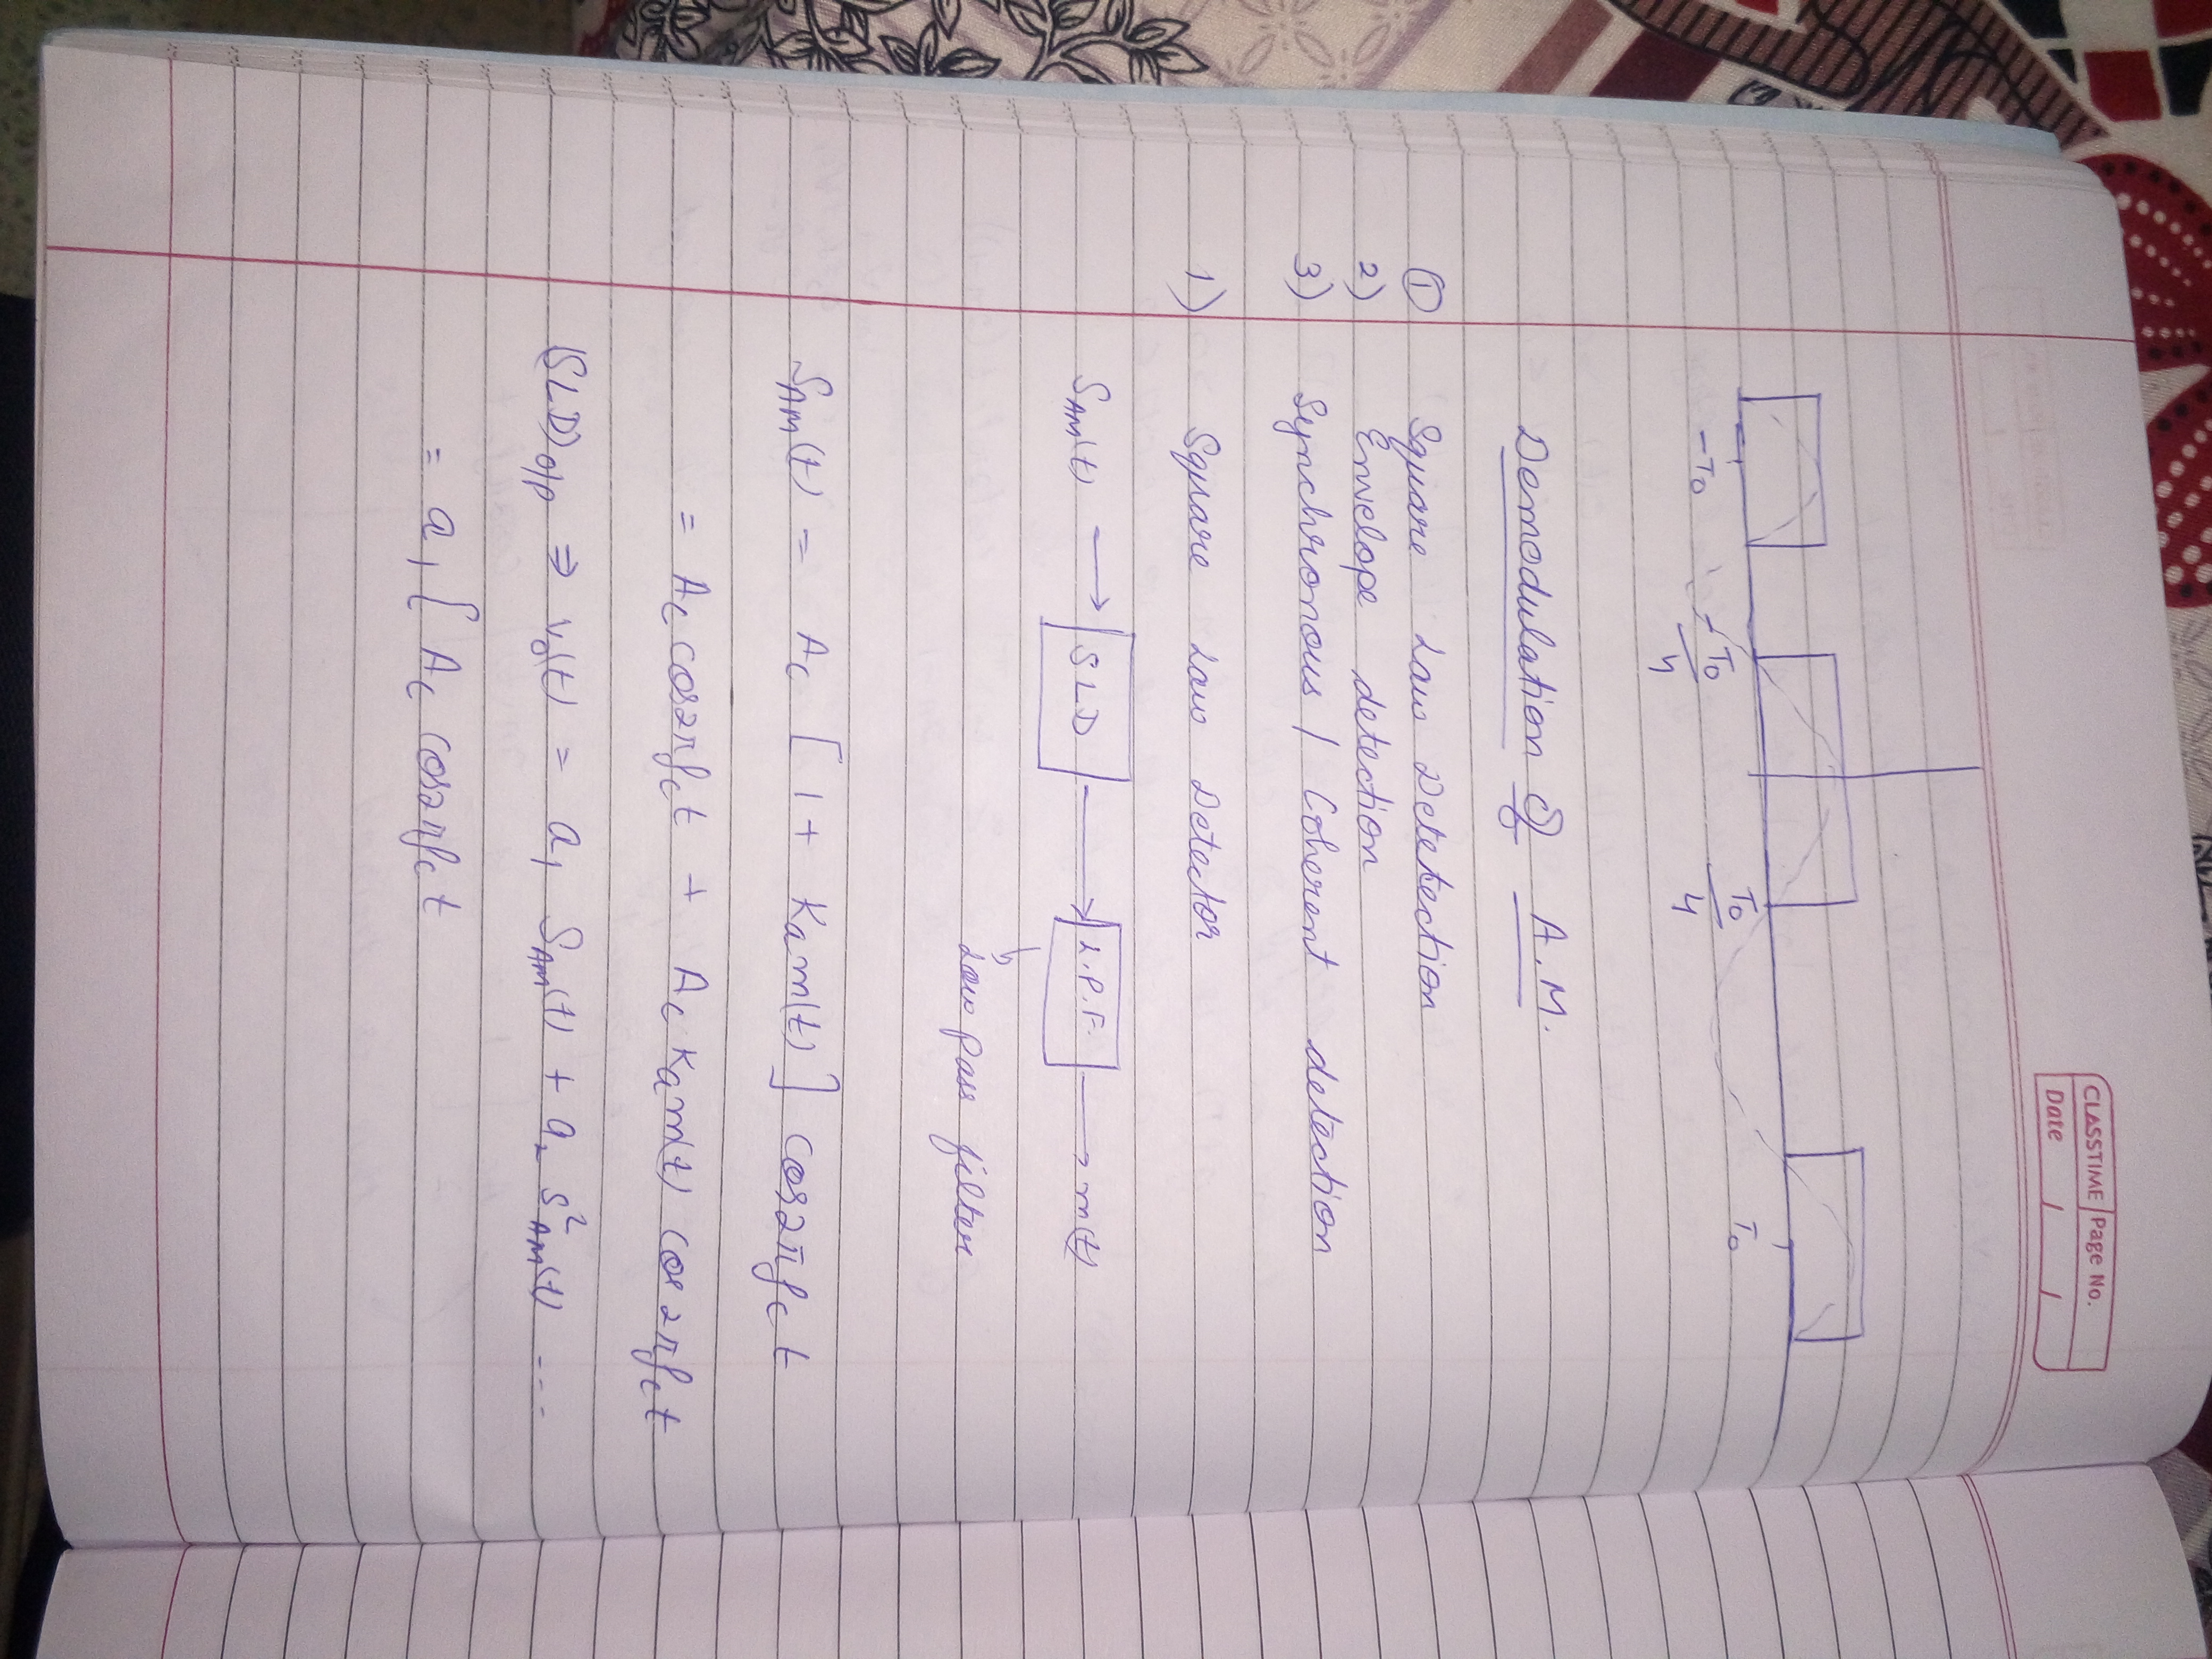 CLASSTIME Page No.
Date / /
-T₀ -T₀/4 T₀/4 T₀
Demodulation of A.M.
① Square Law Detection
2) Envelope detection
3) Synchronous / Coherent detection
1) Square Law Detector
S_AM(t) → SLD → L.P.F. → m(t)
↳ Low pass filter
S_AM(t) = A_c [1 + Kam(t)] cos2πf_ct
= A_c cos2πf_ct + A_c Kam(t) cos2πf_ct
(SLD)o/p ⇒ v₀(t) = a₁ S_AM(t) + a₂ S²_AM(t) ---
= a₁ [A_c cos2πf_ct